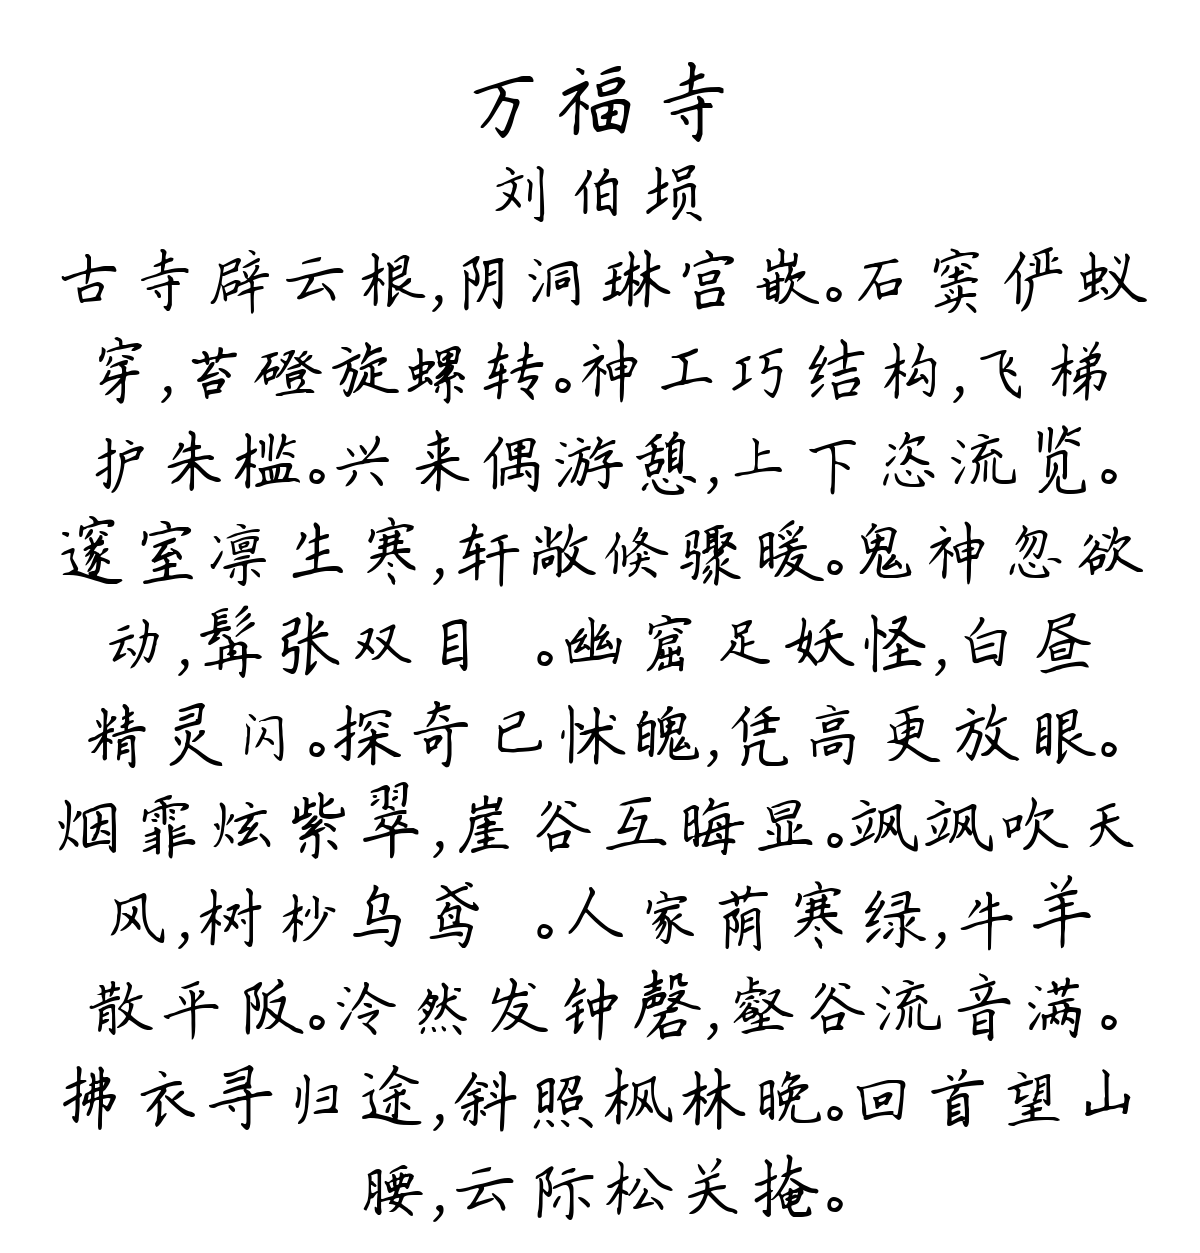 万福寺
刘伯埙
古寺辟云根,阴洞琳宫嵌。石窦俨蚁
穿,苔磴旋螺转。神工巧结构,飞梯
护朱槛。兴来偶游憩,上下恣流览。
邃室凛生寒,轩敞倏骤暖。鬼神忽欲
动,髯张双目 。幽窟足妖怪,白昼
精灵闪。探奇已怵魄,凭高更放眼。
烟霏炫紫翠,崖谷互晦显。飒飒吹天
风,树杪乌鸢 。人家荫寒绿,牛羊
散平阪。泠然发钟磬,壑谷流音满。
拂衣寻归途,斜照枫林晚。回首望山
腰,云际松关掩。